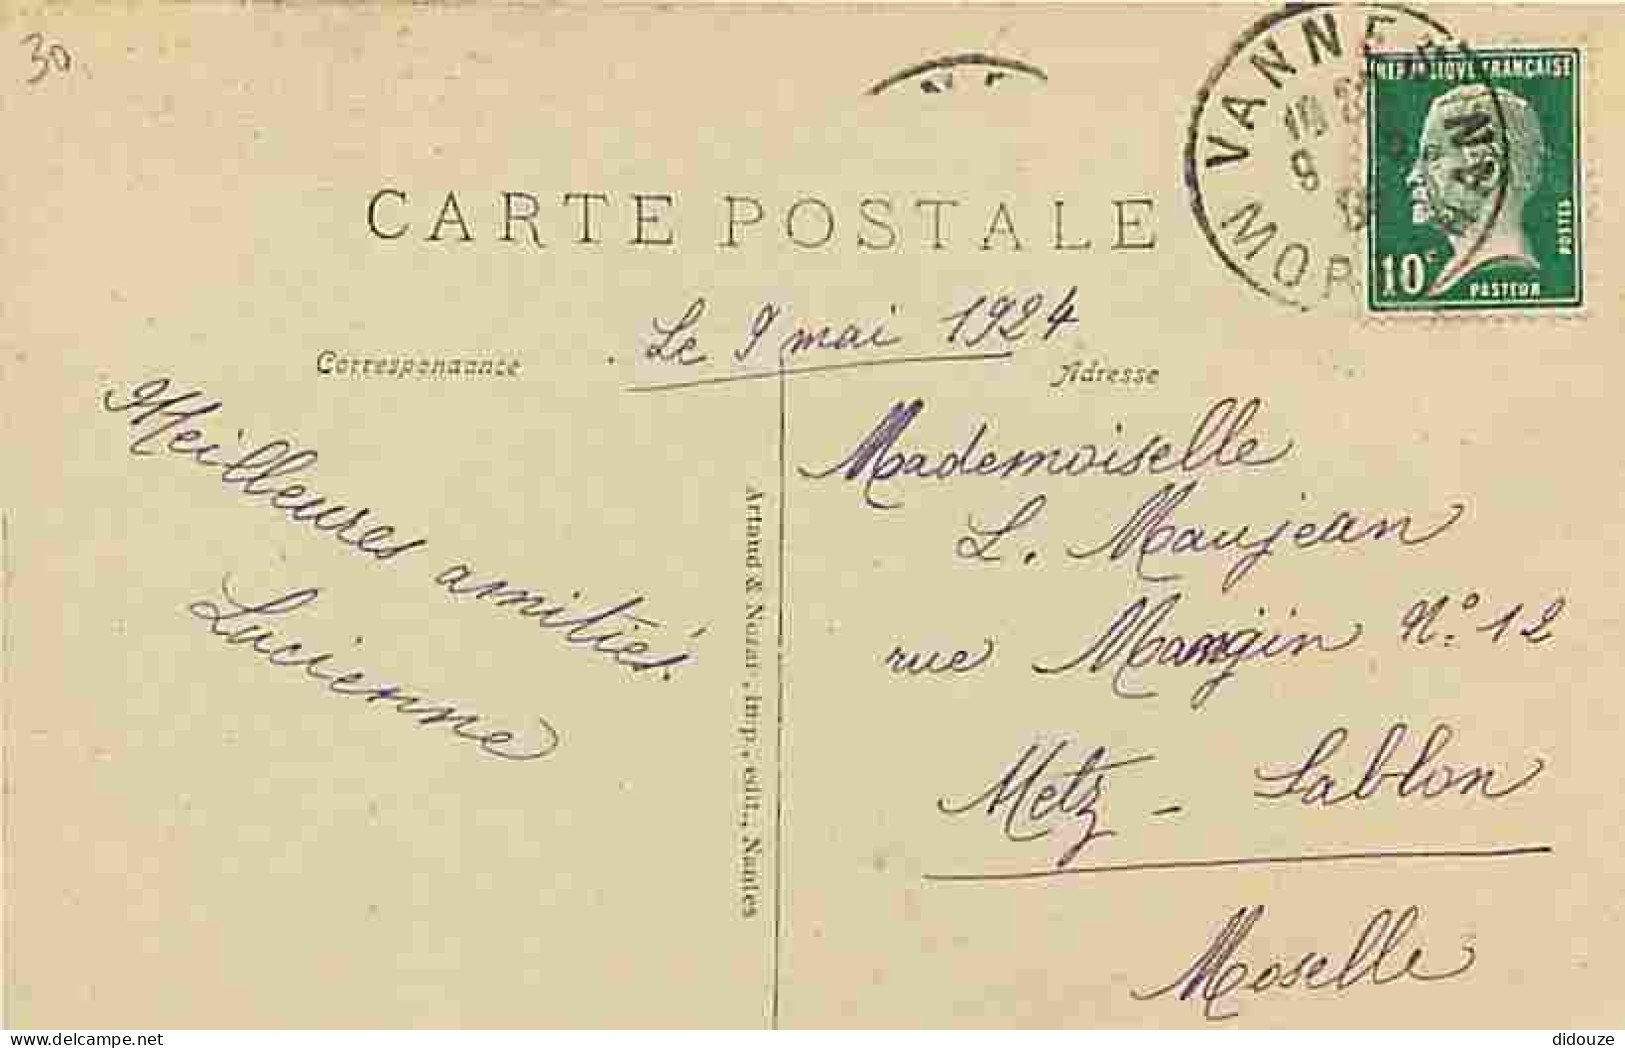 30.
VANNES
MORBIHAN
REPUBLIQUE FRANÇAISE
POSTES
10
PASTEUR
CARTE POSTALE
Le 9 mai 1924
Correspondance
Adresse
Meilleures amitiés.
Lucienne
Artaud & Nozais, Imp., édit., Nantes
Mademoiselle
L. Maujean
rue Mangin N° 12
Metz - Sablon
Moselle
delcampe.net
didouze